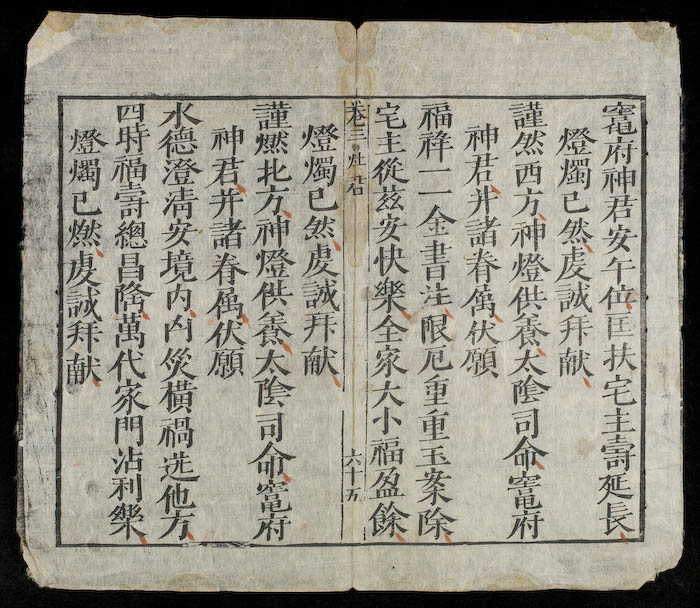 竈府神君安午位匡扶宅主壽延長
燈燭已然虔誠拜献
謹然西方神燈供養太陰司命竈府
神君并諸眷属伏願
福祥一一金書注限厄重重玉案除
宅主從兹安快樂全家大小福盈餘
卷三 灶君 六十五
燈燭已然虔誠拜献
謹燃北方神燈供養太陰司命竈府
神君并諸眷属伏願
水德澄清安境内凶災橫禍迸他方
四時福壽總昌隆萬代家門沾利樂
燈燭已燃虔誠拜献